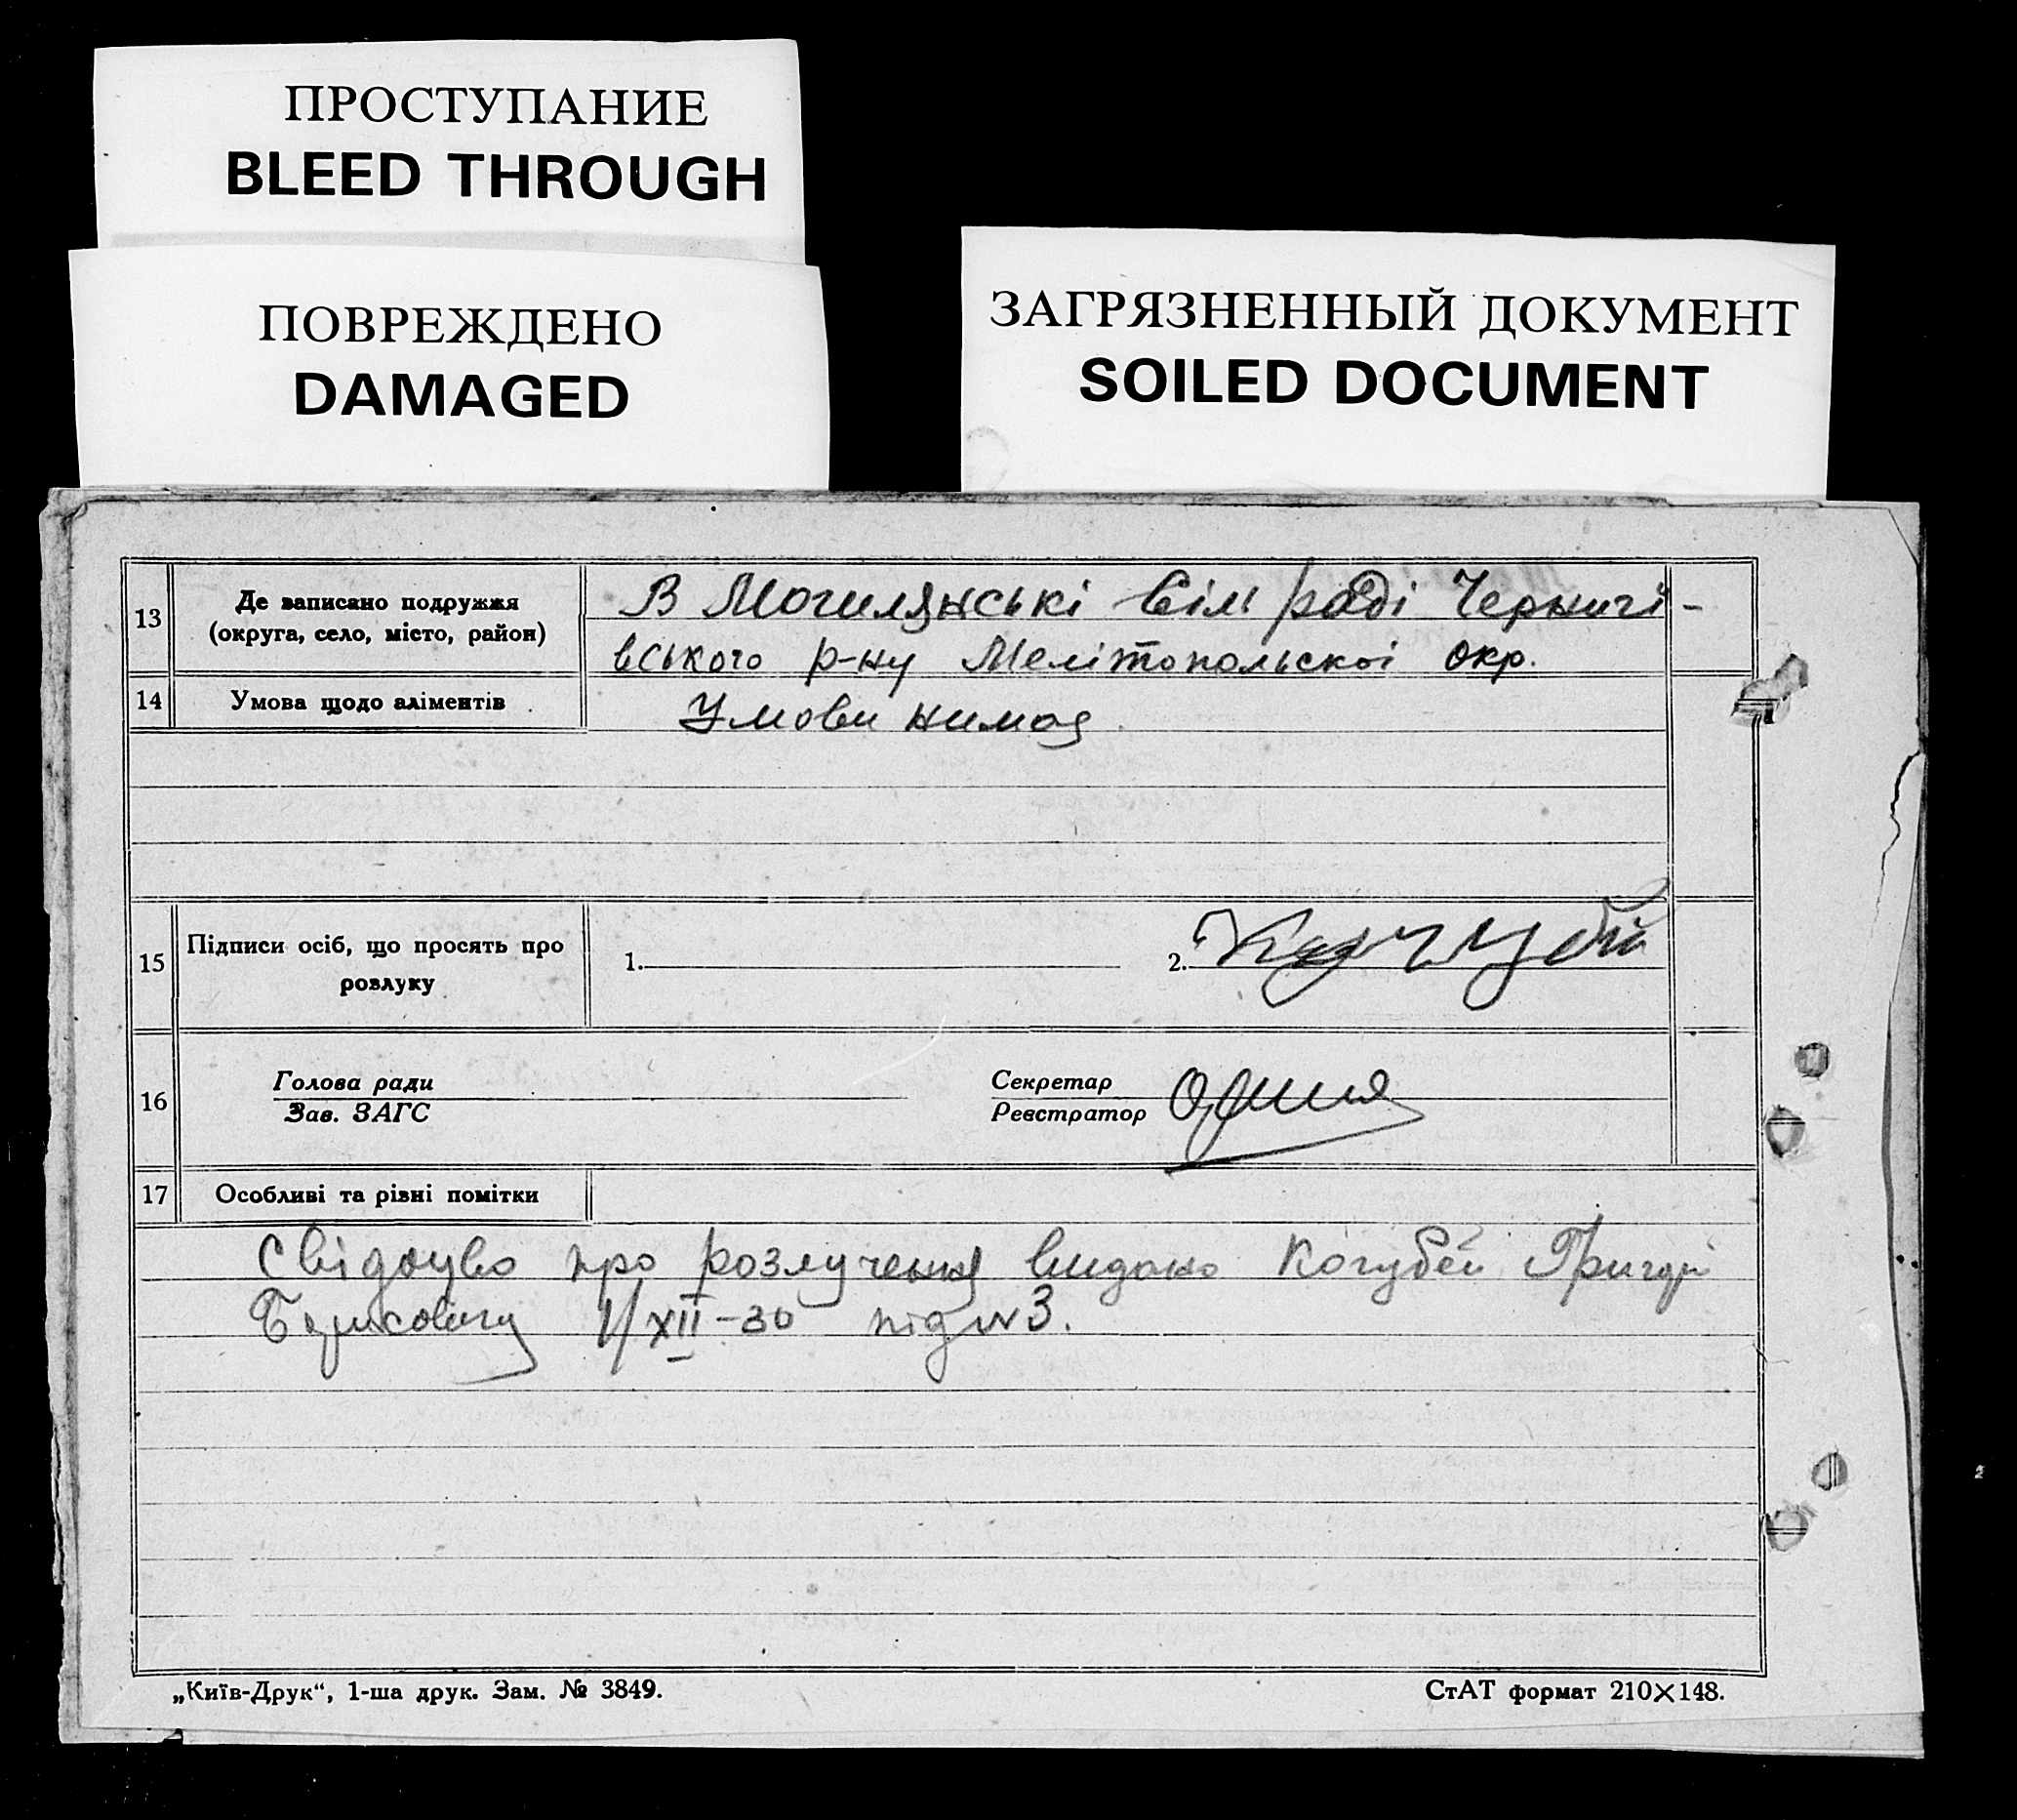 ПРОСТУПАНИЕ
BLEED THROUGH
ПОВРЕЖДЕНО
DAMAGED
ЗАГРЯЗНЕННЫЙ ДОКУМЕНТ
SOILED DOCUMENT
13
Де записано подружжя
(округа, село, місто, район)
В Могилянські Сіл раді Чернигі-
вського р-ну Мелітопольскоі окр.
14
Умова щодо аліментів
Умови нимая
15
Підписи осіб, що просять про
розлуку
1.
2. Кочубій
16
Голова ради
Зав. ЗАГС
Секретар
Реєстратор
17
Особливі та різні помітки
про розлучення видано Кочубей Григорі
Борисовичу 1/XII-30 під №3.
„Київ-Друк“, 1-ша друк. Зам. № 3849.
СтАТ формат 210×148.